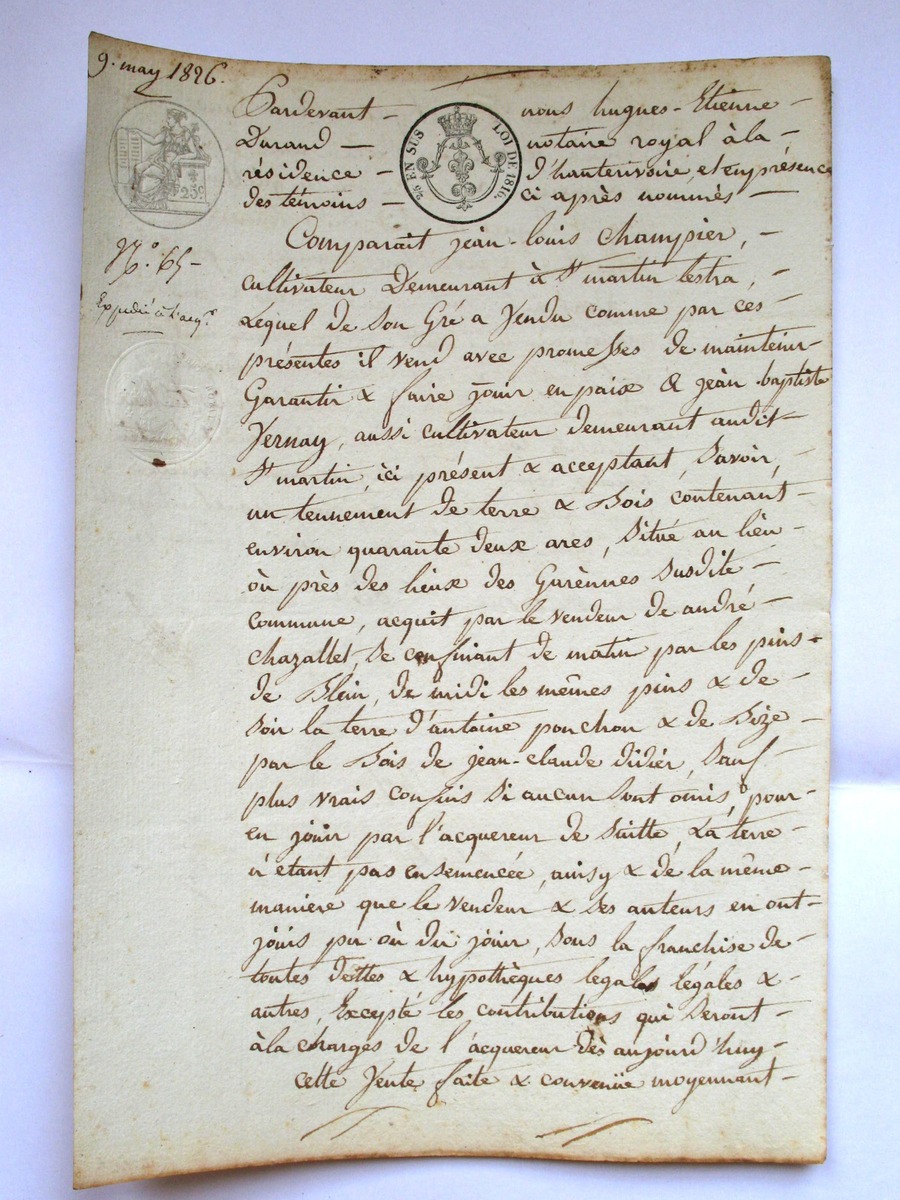 9. may 1826.
Pardevant — nous hugues-Etienne —
Durand — notaire royal à la —
résidence — d'hauterivoire, et en présence
des témoins — ci après nommés —
25 EN SUS LOI DE 1816.
25c
No. 65 —
Expédié à l'acq.r
Comparait jean-louis champier, —
cultivateur Demeurant à St martin lestra, —
Lequel de Son Gré a Vendu comme par ces —
présentes il vend avec promesses de maintenir
Garantir & faire jouir en paix A jean baptiste
Vernay, aussi cultivateur Demeurant audit —
St martin, ici présent & acceptant, Savoir, —
un tennement de terre & Bois contenant —
environ quarante deux ares, Situé au lieu —
où près des lieux des Garènnes Susdite —
commune, acquit par le vendeur de andré —
chazallet, Se confinant de matin par les pins —
de Blein, de midi les mêmes pins & de —
Soir la terre d'antoine ponchon & de Bize —
par le Bois de jean-claude didier, Sauf —
plus vrais confins Si aucun Sont omis, pour —
en jouir par l'acquereur de Suitte, La terre —
n'étant pas ensemencée, ainsy & de la même —
maniere que le vendeur & Ses auteurs en ont —
jouis pu où du jouir, Sous la franchise de —
toutes dettes & hypothèques legales légales & —
autres, Excepté les contributions qui Seront —
à la charges de l'acquereur dès aujourd'huy —
cette Vente faite & convenüe moyennant —